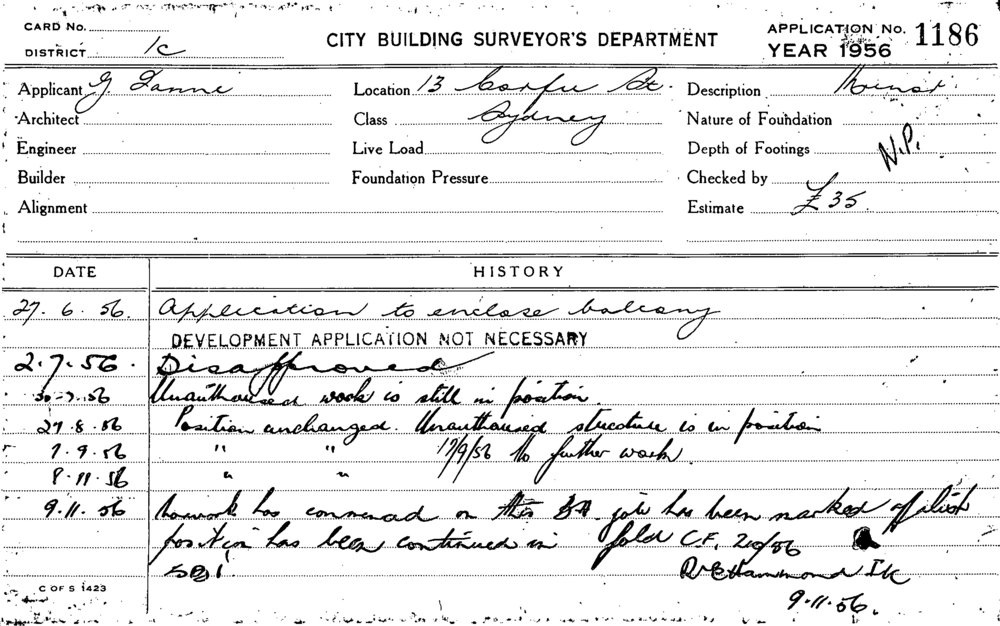 CARD No.
DISTRICT 1c
CITY BUILDING SURVEYOR'S DEPARTMENT
APPLICATION No. 1186
YEAR 1956
Applicant G
Location 13 Corfu St.
Description Minor.
Architect
Class Sydney
Nature of Foundation
Engineer
Live Load
Depth of Footings N.P.
Builder
Foundation Pressure
Checked by
Alignment
Estimate £35.
DATE HISTORY
27. 6. 56. Application to enclose balcony
DEVELOPMENT APPLICATION NOT NECESSARY
2.7.56. Disapproved
30-7.56 Unauthorised work is still in position.
27.8.56 Position unchanged. Unauthorised structure is in position
7.9.56 " " 17/9/56 No further work.
8.11.56 " "
9.11.56 has on this BA job has been marked off
position has been continued in C.F. 210/56
Hammond
9.11.56.
C OF S 1423